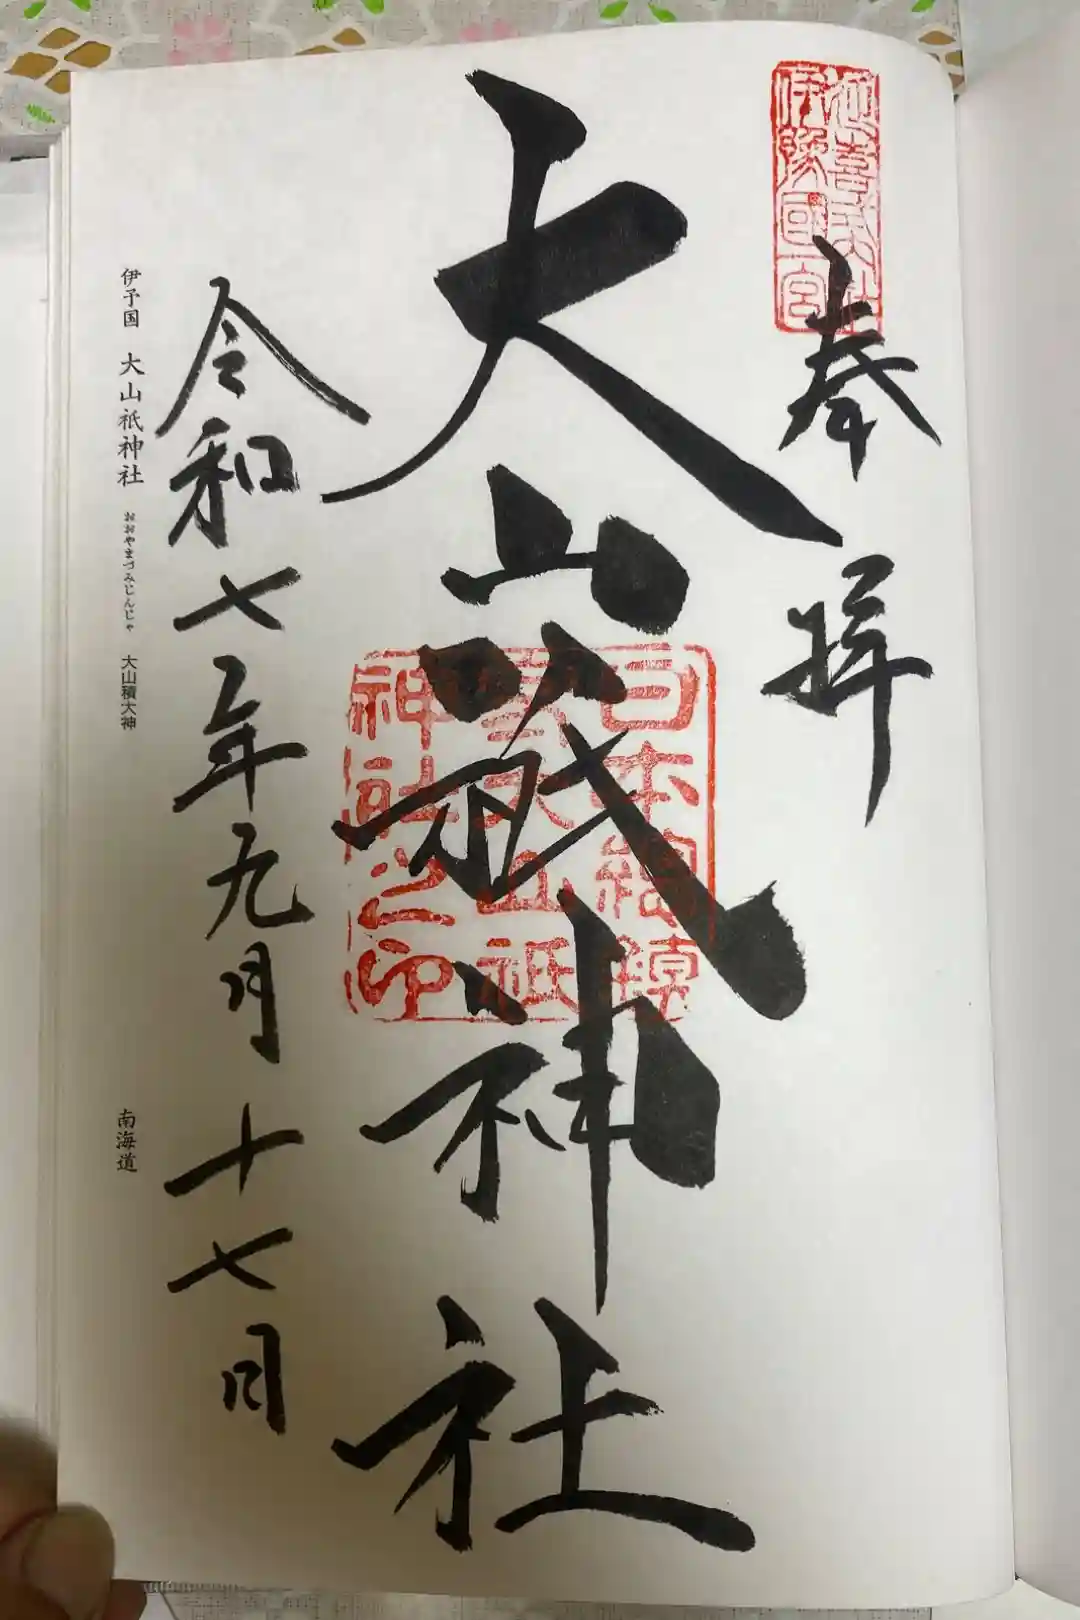 延喜式社
伊豫國宮
奉拝
大山祇神社
日本総鎮
守大山祇
神社之印
令和七年九月十七日
伊予国 大山祇神社 おおやまづみじんじゃ 大山積大神 南海道